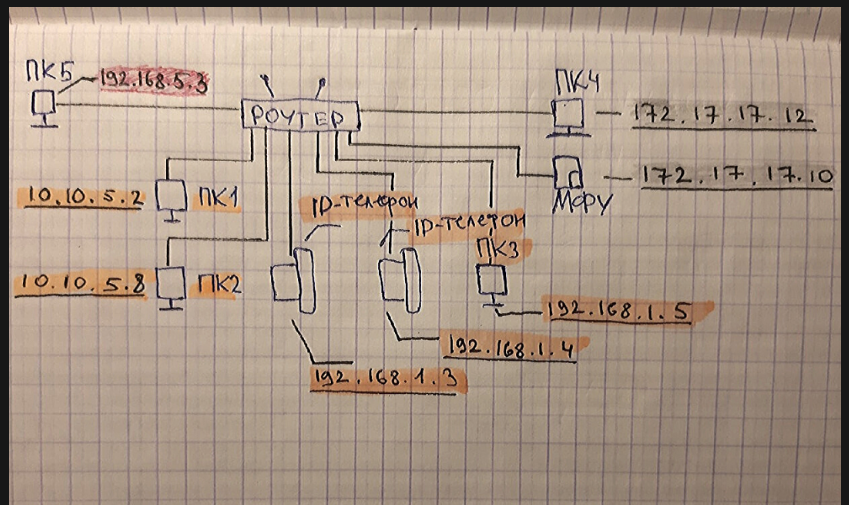 ПК5
192.168.5.3
РОУТЕР
ПК4
172.17.17.12
172.17.17.10
МФУ
10.10.5.2
ПК1
IP-телефон
IP-телефон
ПК3
10.10.5.8
ПК2
192.168.1.5
192.168.1.4
192.168.1.3